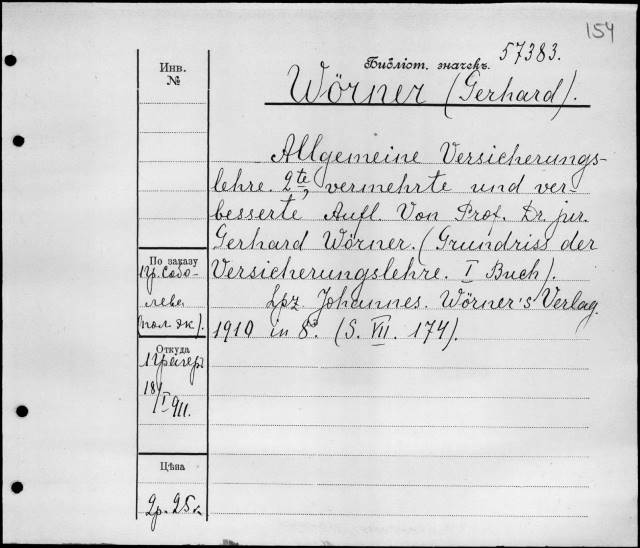 154
Библіот. значекъ. 57383.
Инв.
№
Wörner (Gerhard).
Allgemeine Versicherungs-
lehre. 2te, vermehrte und ver-
besserte Aufl. Von Prof. Dr. jur.
Gerhard Wörner. (Grundriss der
Versicherungslehre. I Buch).
Lpz. Johannes. Wörner's Verlag.
1910 in 8°. (S. VII. 174).
По заказу
пр. Собо-
лева
(пол. эк).
Откуда
18/I 911.
Цѣна
2р. 25к